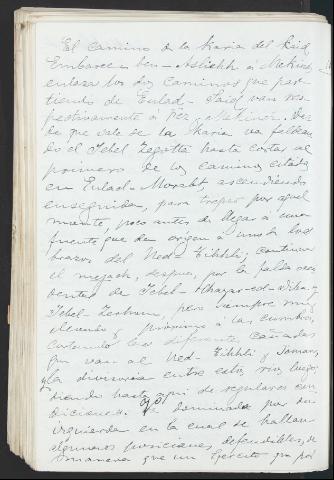 El camino de la Karia del Kaid
Embarec-ben- á Mekinez
enlaza los dos caminos que par-
tiendo de Eulad-Said van res-
pectivamente á Fez, Mekinez. Des
de que sale de la Karia va faldean
do el Yebel Zegotta hasta cortar al
primero de los caminos citados
en Eulad- ascendiendo
enseguida, para trepar por aquel
monte, poco antes de llegar á una
fuente que da origen á uno de los
brazos del Ued- continua
el despues, por la falda occi
dental de Yebel-
Yebel- pero siempre muy
elevado y próximo á las cumbres,
cortando las diferentes cañadas
que van al Ued- y
y la divisoria entre estos rios, luego,
siendo hasta aqui de regulares con
diciones. Es dominado por su
izquierda en la cual se hallan
algunas posiciones defendibles, de
manera que un Ejercito que por